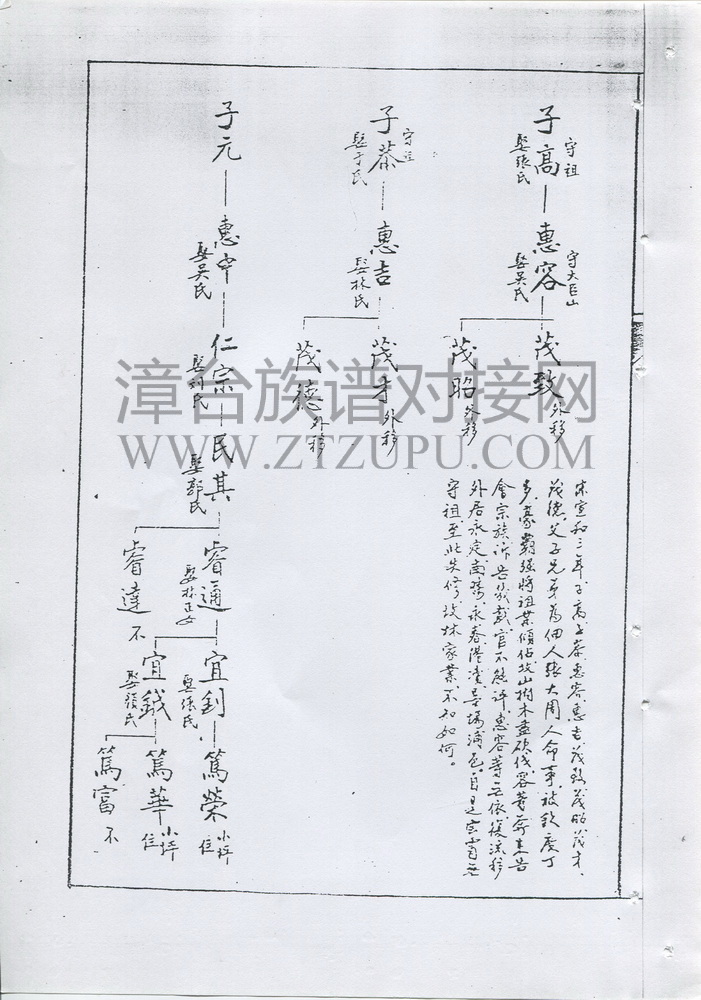 子高
守祖
娶張氏
惠容
守大巨山
娶吳氏
茂致
外移
茂昭
外移
子恭
守祖
娶于氏
惠吉
娶林氏
茂才
外移
茂德
外移
子元
惠中
娶吳氏
仁宗
娶何氏
民其
娶郭氏
睿通
娶林正女
睿達
不
宜釗
娶張氏
宜鉞
娶張氏
篤榮
小坪
住
篤華
小坪
住
篤富
不
宋宣和三年子高子恭惠容惠吉茂致茂昭茂才
茂德父子兄弟為佃人張大周人命事被
多豪霸強將祖業傾佔坟山樹木盡砍伐容等奔走告
會宗族訴告幾載官不能評惠容等無依復流移
外居永定
守祖至此失修坟林家業不知如何。
漳台族谱对接网
WWW.ZTZUPU.COM